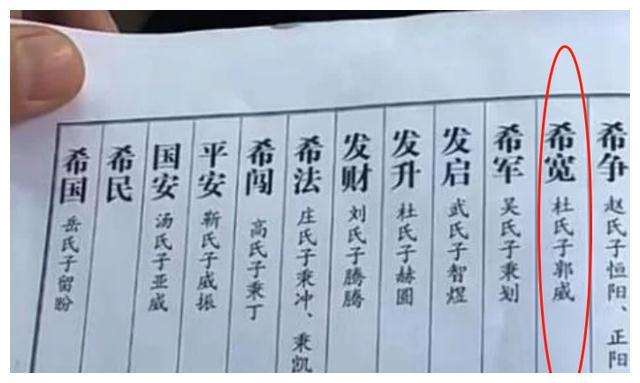 希争 赵氏子恒阳、正阳
希宽 杜氏子郭威
希军 吴氏子秉划
发启 武氏子智煜
发升 杜氏子赫圆
发财 刘氏子腾腾
希法 庄氏子秉冲、秉凯
希闯 高氏子秉丁
平安 靳氏子威振
国安 汤氏子亚威
希民
希国 岳氏子留盼